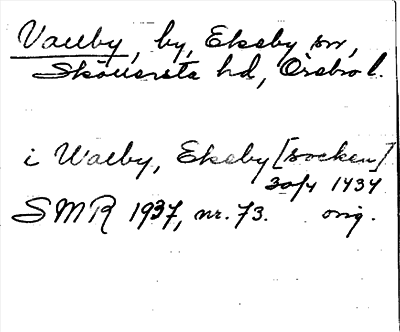 Vallby, by, Ekeby sn,
Sköllersta hd, Örebro l.
i Walby, Ekeby [socken]
30/4 1434
SMR 1937, nr. 73. orig.